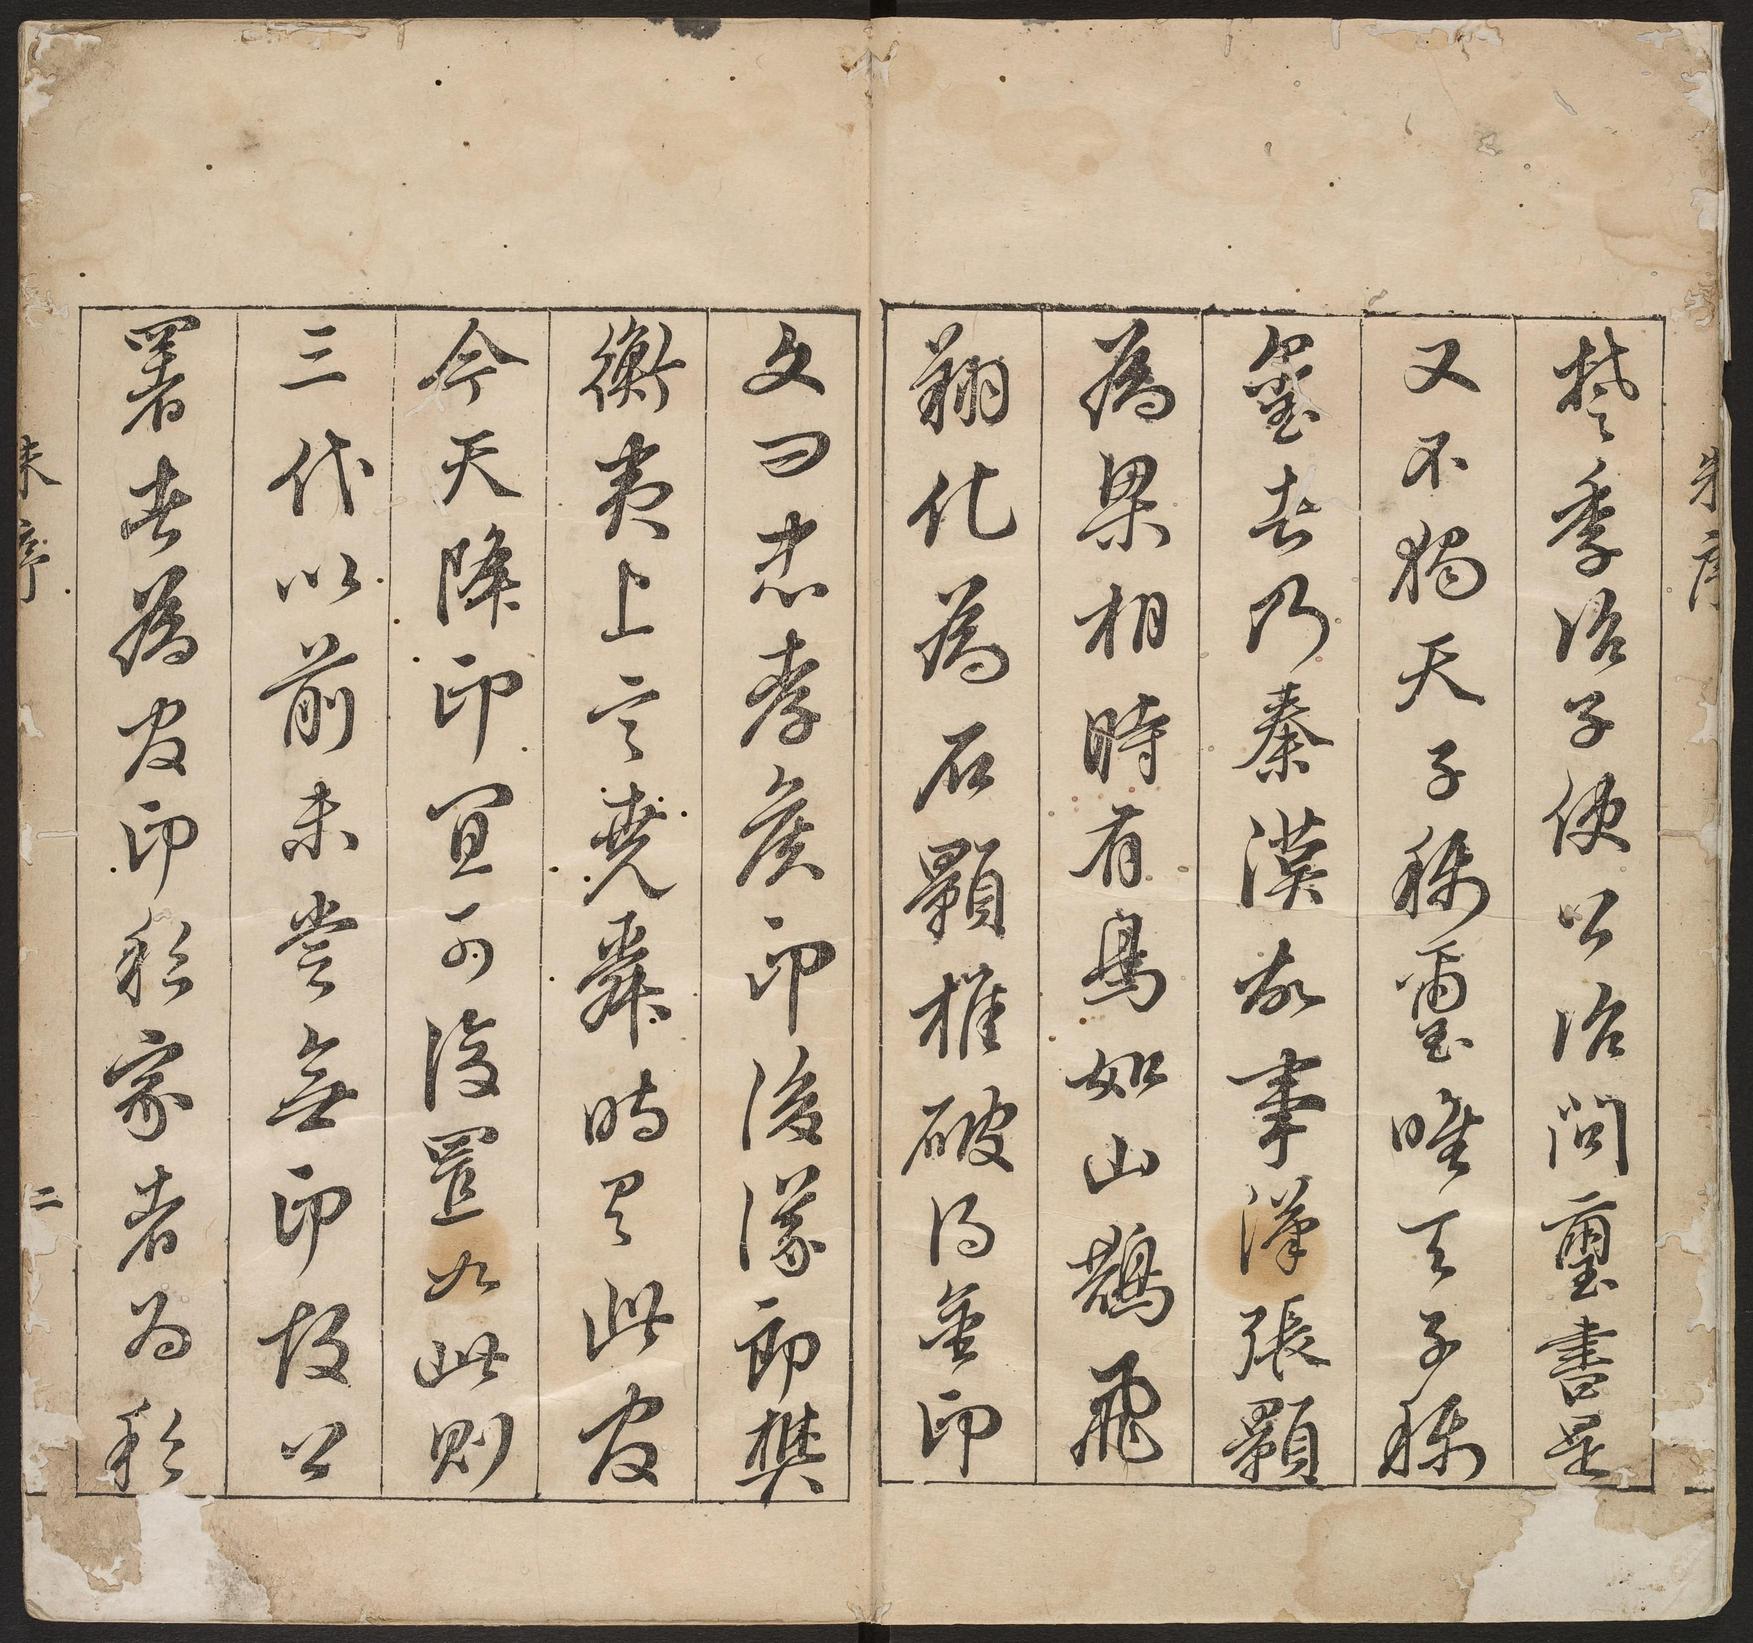 楚季冶子使公冶問璽書是
又不獨天子稱璽唯天子稱
璽者乃秦漢故事漢張顥
為梁相時有鳥如山鵲飛
翔化為石顥椎破得金印
文曰忠孝侯印後議郎樊
衡夷上言堯舜時有此官
今天降印宜可復置如此則
三代以前未嘗無印故公
署者為官印私家者為私
朱序
朱序
二